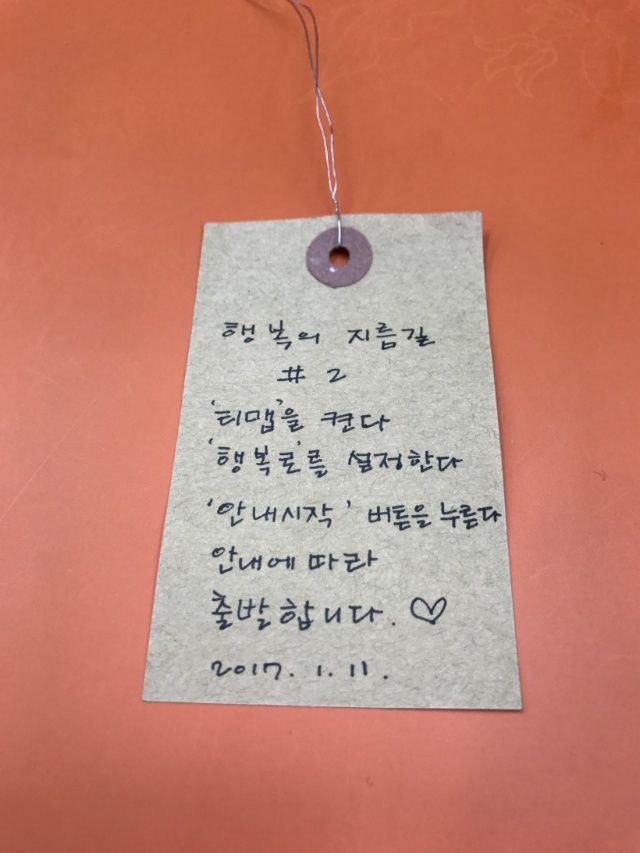 행복의 지름길
# 2
'티맵'을 켠다
'행복로'를 설정한다
'안내시작' 버튼을 누른다
안내에 따라
출발합니다. ♡
2017. 1. 11.